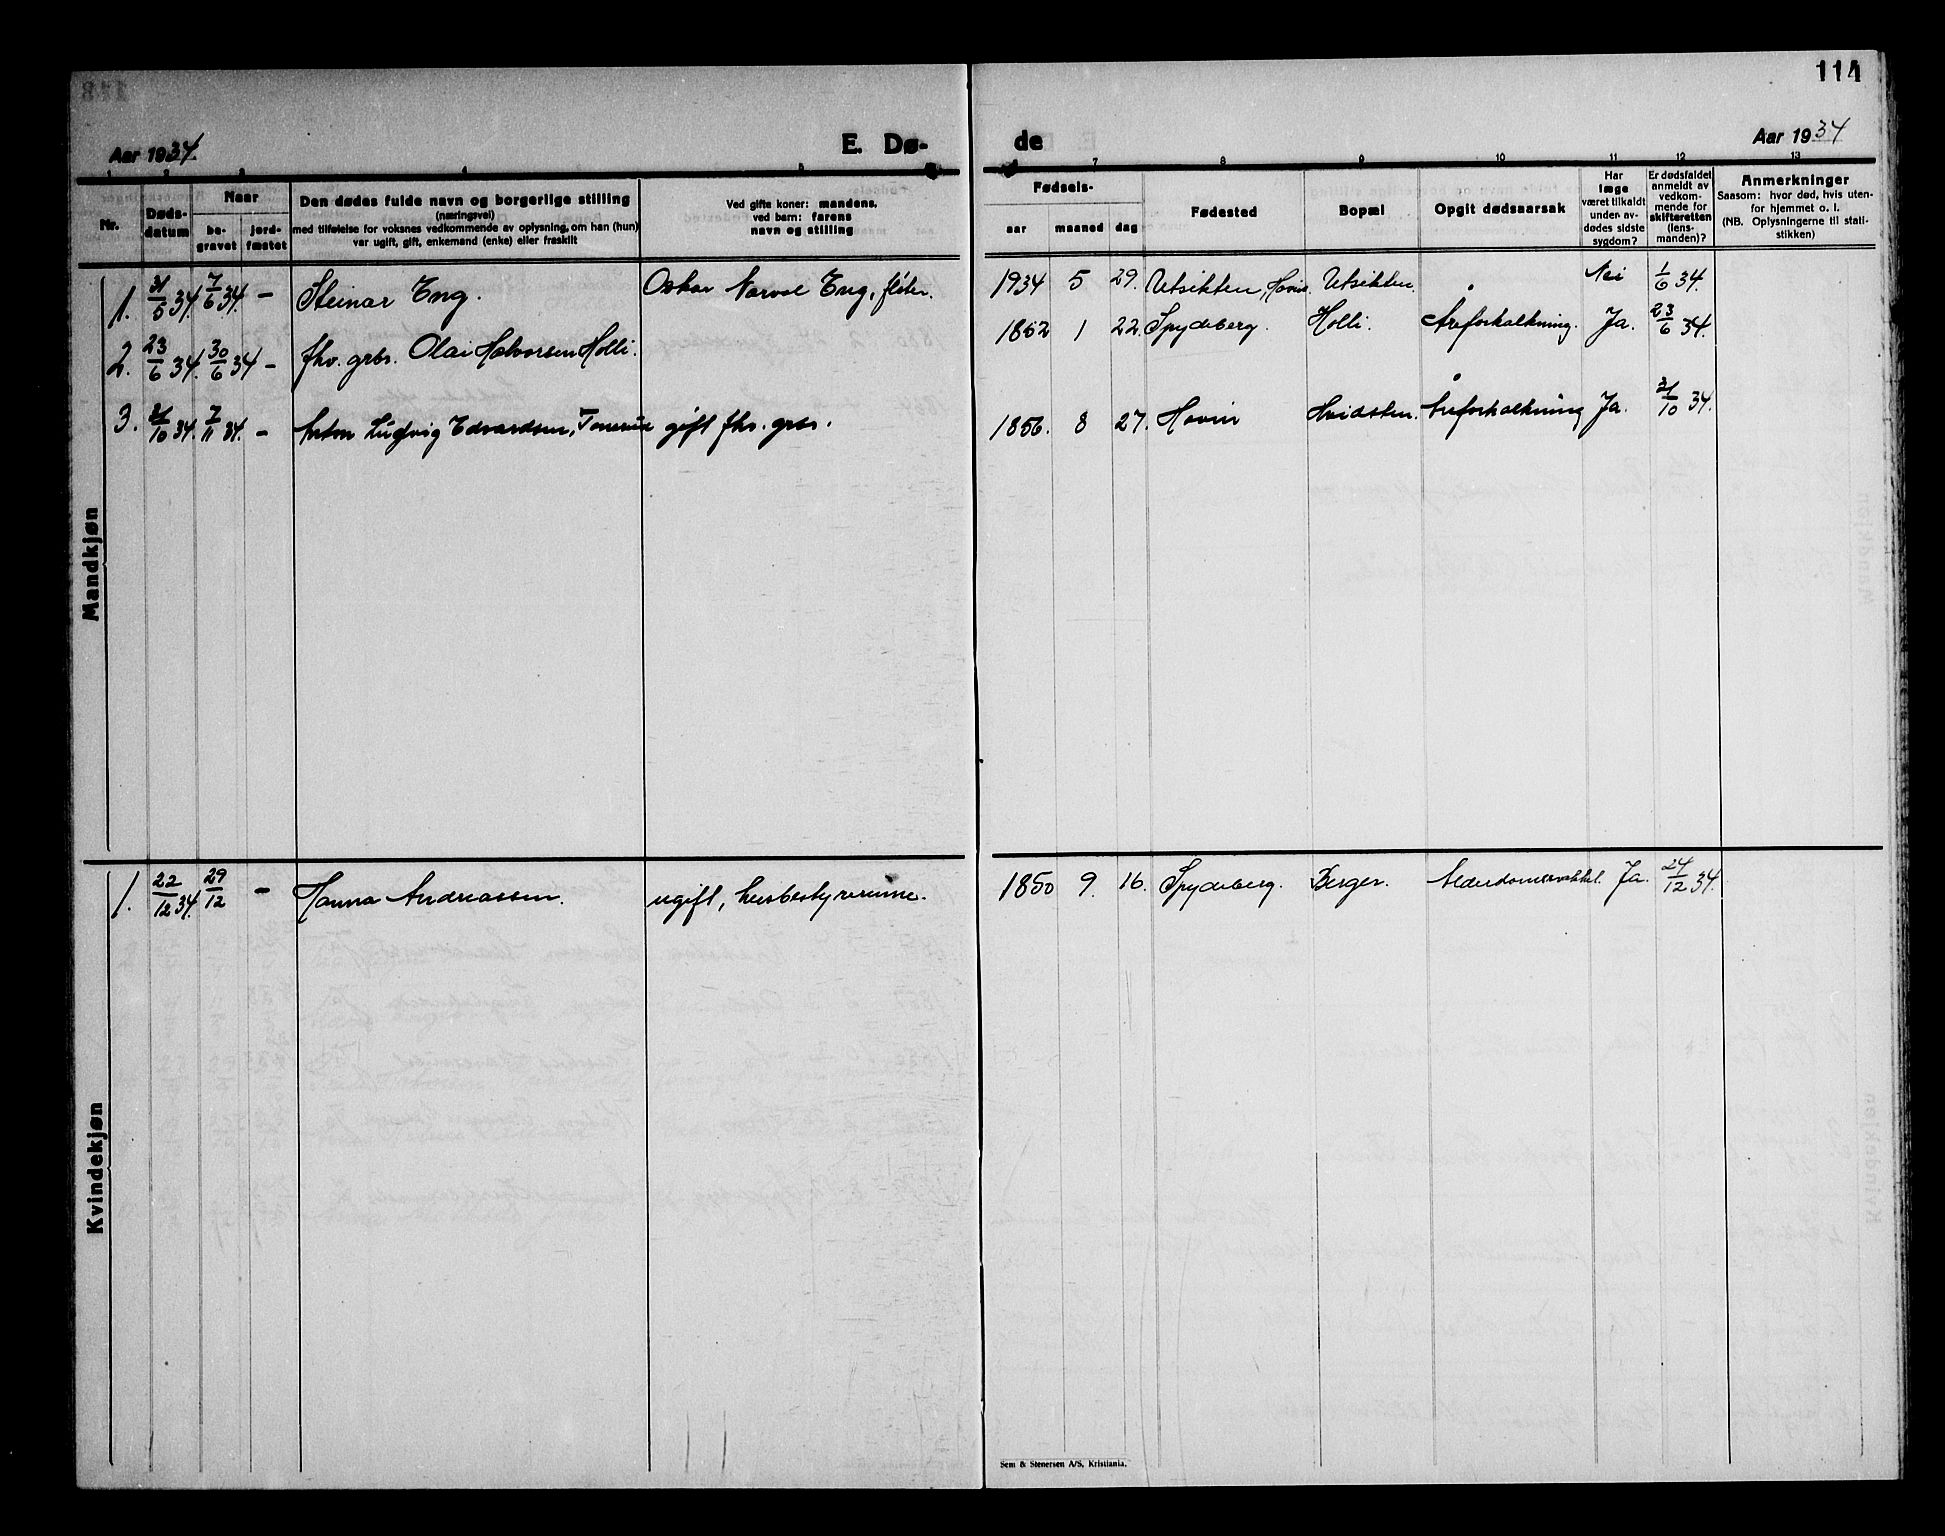 114
Aar 1934.
E. Dø-
de
Aar 1934
1 2 3 4 5
6 7 8 9 10 11 12 13
Nr.
Døds-
datum
Naar
be-
gravet
jord-
fæstet
Den dødes fulde navn og borgerlige stilling
(næringsvei)
med tilføielse for voksnes vedkommende av oplysning, om han (hun)
var ugift, gift, enkemand (enke) eller fraskilt
Ved gifte koner: mandens,
ved barn: farens
navn og stilling
Fødsels-
aar
maaned
dag
Fødested
Bopæl
Opgit dødsaarsak
Har
læge
været tilkaldt
under av-
dødes sidste
sygdom?
Er dødsfaldet
anmeldt av
vedkom-
mende for
skifteretten
(lens-
manden)?
Anmerkninger
Saasom: hvor død, hvis uten-
for hjemmet o. l.
(NB. Oplysningerne til stati-
stikken)
Mandkjøn
1. 31/5 34. 7/6 34. – Steinar Eng. Oskar Eng, fløter. 1934 5 29. Utsikten, Hovin. Utsikten. Nei 1/6 34.
2. 23/6 34. 30/6 34 – fhv. grbr. Olai Halvorsen Holli. 1862 1 22. Spydeberg. Holli. Åreforkalkning. Ja. 23/6 34.
3. 31/10 34. 7/11 34. – Anton Ludvig Edvardsen, Tonerud gift fhv. grbr. 1856. 8 27. Hovin Hvidsten. Åreforkalkning Ja. 31/10 34.
Kvindekjøn
1. 22/12 34. 29/12 – Hanna Andreassen. ugift, husbestyrerinne. 1850 9. 16. Spydeberg. Berger. Alderdomssvakket. Ja. 24/12 34.
Sem & Stenersen A/S, Kristiania.